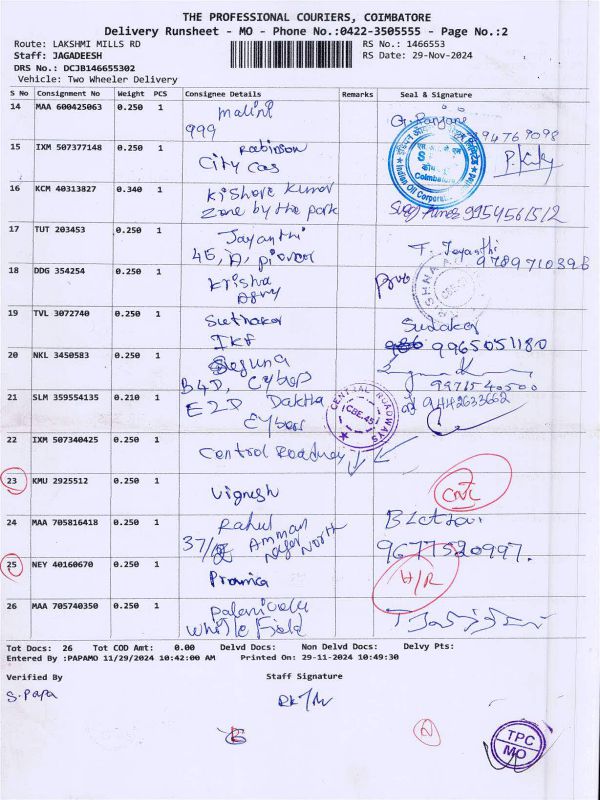 THE PROFESSIONAL COURIERS, COIMBATORE
Delivery Runsheet - MO - Phone No.:0422-3505555 - Page No.:2
Route: LAKSHMI MILLS RD RS No.: 1466553
Staff: JAGADEESH RS Date: 29-Nov-2024
DRS No.: DCJB146655302
Vehicle: Two Wheeler Delivery
S No Consignment No Weight PCS Consignee Details Remarks Seal & Signature
14 MAA 600425063 0.250 1 malini
999
15 IXM 507377148 0.250 1 Robinson
City Gas
Indian Oil Corporation
Coimbatore
16 KCM 40313827 0.340 1 Kishore Kumar
Zone by the park 9954561512
17 TUT 203453 0.250 1 Jayanthi F. Jayanthi
45, A, pioneer
18 DDG 354254 0.250 1 Krisha
19 TVL 3072740 0.250 1 Suthakar Sudakar
IKF 9965051180
20 NKL 3450583 0.250 1
B4D, Cybers 9971540500
21 SLM 359554135 0.210 1 E2D Daktha 9442633662
Cybers
CENTRAL ROADWAYS
CBE.45
22 IXM 507340425 0.250 1 Central Roadway
23 KMU 2925512 0.250 1 Vignesh
24 MAA 705816418 0.250 1 Rahul
37/ Amman Nagar North 9677520997.
25 NEY 40160670 0.250 1 H/R
26 MAA 705740350 0.250 1 palanivelu
White Field
Tot Docs: 26 Tot COD Amt: 0.00 Delvd Docs: Non Delvd Docs: Delvy Pts:
Entered By :PAPAMO 11/29/2024 10:42:00 AM Printed On: 29-11-2024 10:49:30
Verified By Staff Signature
S. Papa
TPC
MO